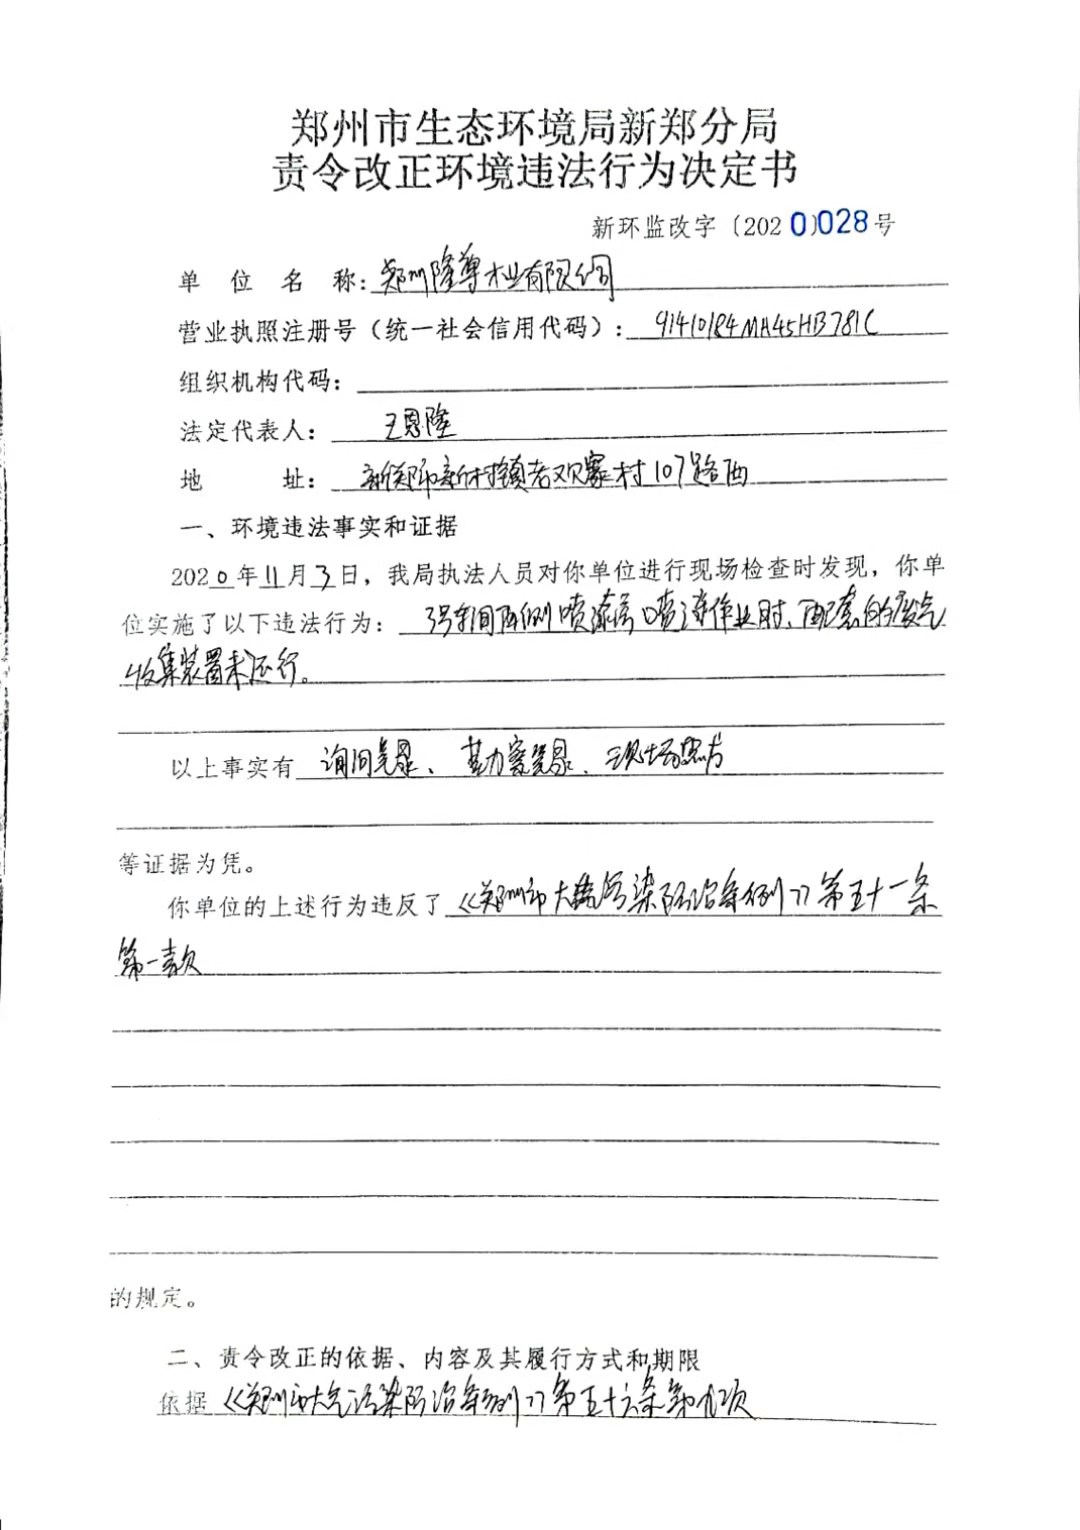 郑州市生态环境局新郑分局
责令改正环境违法行为决定书
新环监改字〔2020〕028号
单位名称：郑州隆尊木业有限公司
营业执照注册号（统一社会信用代码）：91410184MA45HB781C
组织机构代码：
法定代表人：王恩隆
地址：新郑市新村镇老观寨村107路西
一、环境违法事实和证据
2020年11月3日，我局执法人员对你单位进行现场检查时发现，你单
位实施了以下违法行为：3号车间西侧喷漆房喷漆作业时、配套的废气
收集装置未运行。
以上事实有 询问笔录、勘察笔录、现场照片
等证据为凭。
你单位的上述行为违反了《郑州市大气污染防治条例》第五十一条
第一款
的规定。
二、责令改正的依据、内容及其履行方式和期限
依据《郑州市大气污染防治条例》第五十六条第九项